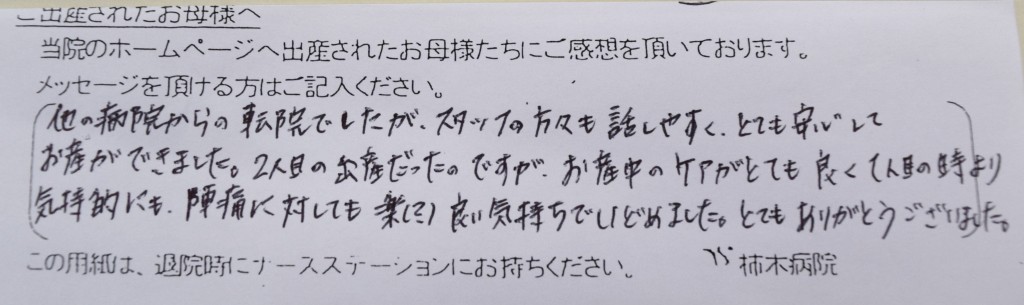 ご出産されたお母様へ
当院のホームページへ出産されたお母様たちにご感想を頂いております。
メッセージを頂ける方はご記入ください。
他の病院からの転院でしたが、スタッフの方々も話しやすく、とても安心して
お産ができました。2人目の出産だったのですが、お産中のケアがとても良く1人目の時より
気持的にも、陣痛に対しても楽に良い気持ちでいどめました。とてもありがとうございました。
この用紙は、退院時にナースステーションにお持ちください。 柿木病院